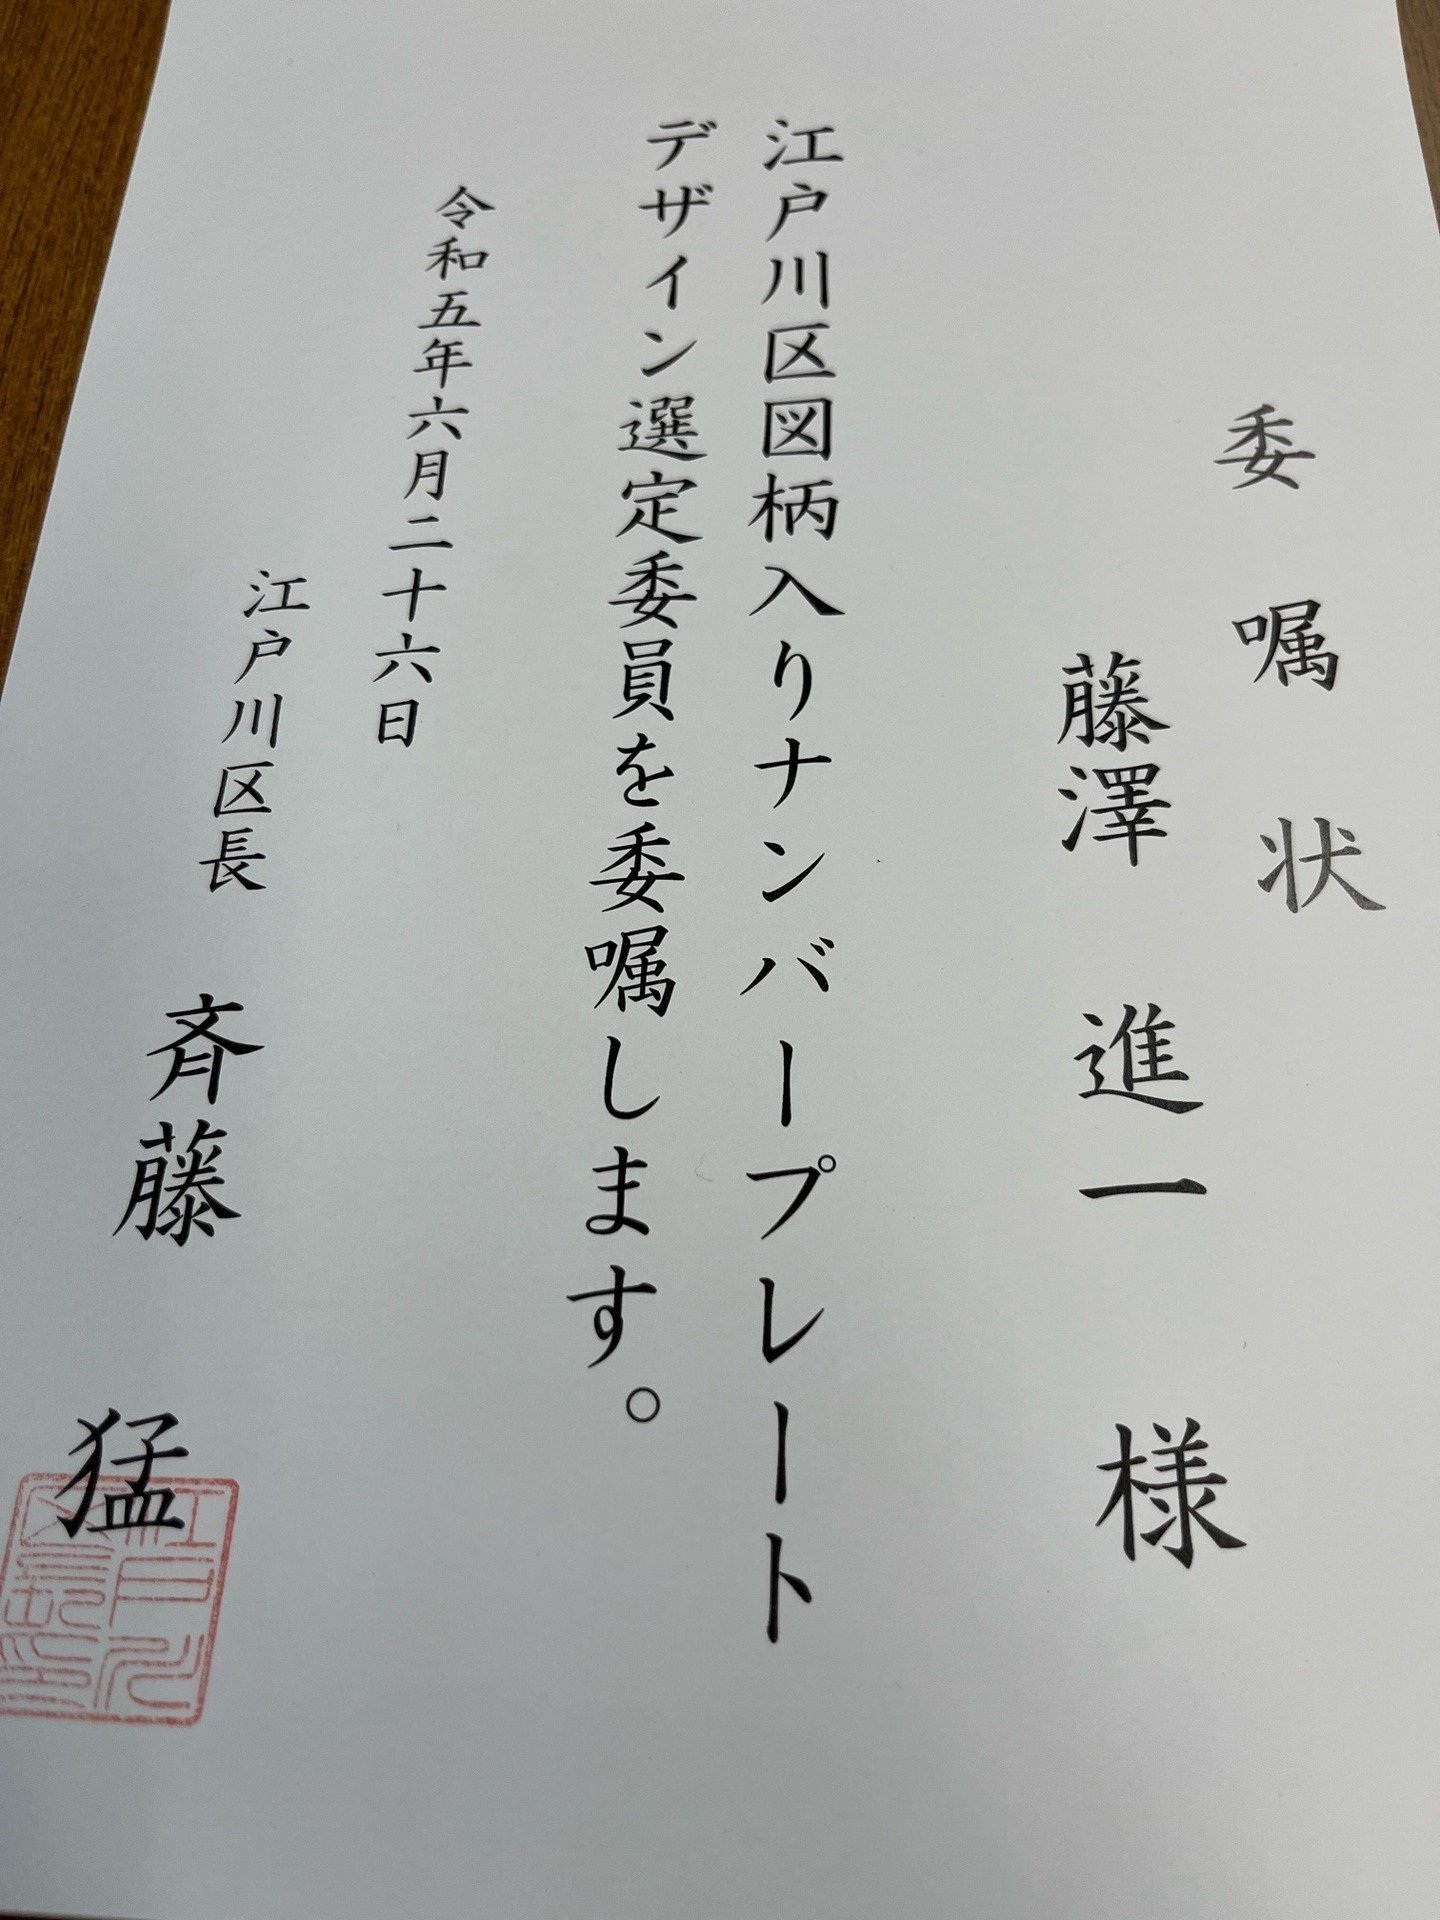 委嘱状
藤澤 進一 様
江戸川区図柄入りナンバープレート
デザイン選定委員を委嘱します。
令和五年六月二十六日
江戸川区長 斉藤 猛
江戸川区長印